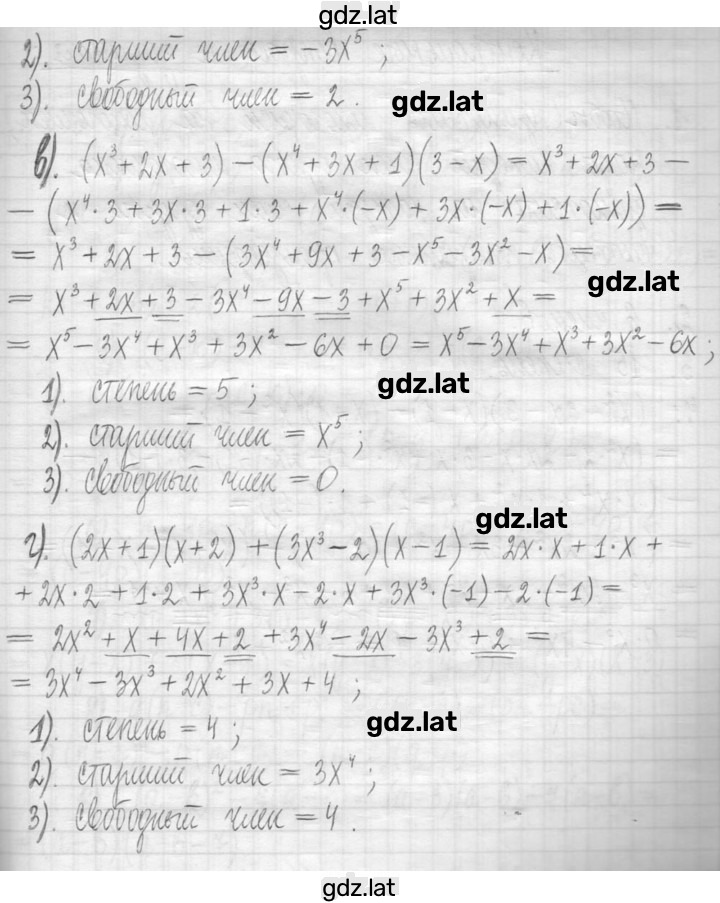 gdz.lat
2). старший член = -3x⁵ ;
3). свободный член = 2 .
gdz.lat
в). (x³ + 2x + 3) - (x⁴ + 3x + 1)(3 - x) = x³ + 2x + 3 -
- (x⁴·3 + 3x·3 + 1·3 + x⁴·(-x) + 3x·(-x) + 1·(-x)) =
= x³ + 2x + 3 - (3x⁴ + 9x + 3 - x⁵ - 3x² - x) =
gdz.lat
= x³ + 2x + 3 - 3x⁴ - 9x - 3 + x⁵ + 3x² + x =
= x⁵ - 3x⁴ + x³ + 3x² - 6x + 0 = x⁵ - 3x⁴ + x³ + 3x² - 6x ;
1). степень = 5 ;
gdz.lat
2). старший член = x⁵ ;
3). свободный член = 0.
gdz.lat
г). (2x + 1)(x + 2) + (3x³ - 2)(x - 1) = 2x·x + 1·x +
+ 2x·2 + 1·2 + 3x³·x - 2·x + 3x³·(-1) - 2·(-1) =
= 2x² + x + 4x + 2 + 3x⁴ - 2x - 3x³ + 2 =
= 3x⁴ - 3x³ + 2x² + 3x + 4 ;
1). степень = 4 ;
gdz.lat
2). старший член = 3x⁴ ;
3). свободный член = 4 .
gdz.lat